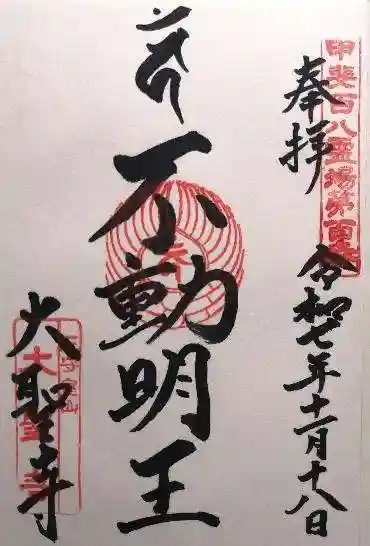 奉拝
令和七年十一月十八日
甲斐百八霊場第百
不動明王
大聖寺
大聖寺